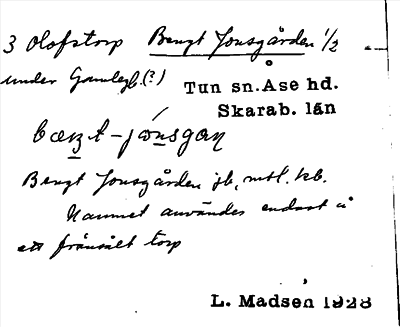 3 Olofstorp Bengt Jonsgården 1/2
under Gamleg.(?)
Tun sn. Åse hd.
Skarab. län
bæŋt-jωnsgaɳ
Bengt Jonsgården jb, mtl. kb.
Namnet användes endast å
ett frånsålt torp
L. Madsen 1928